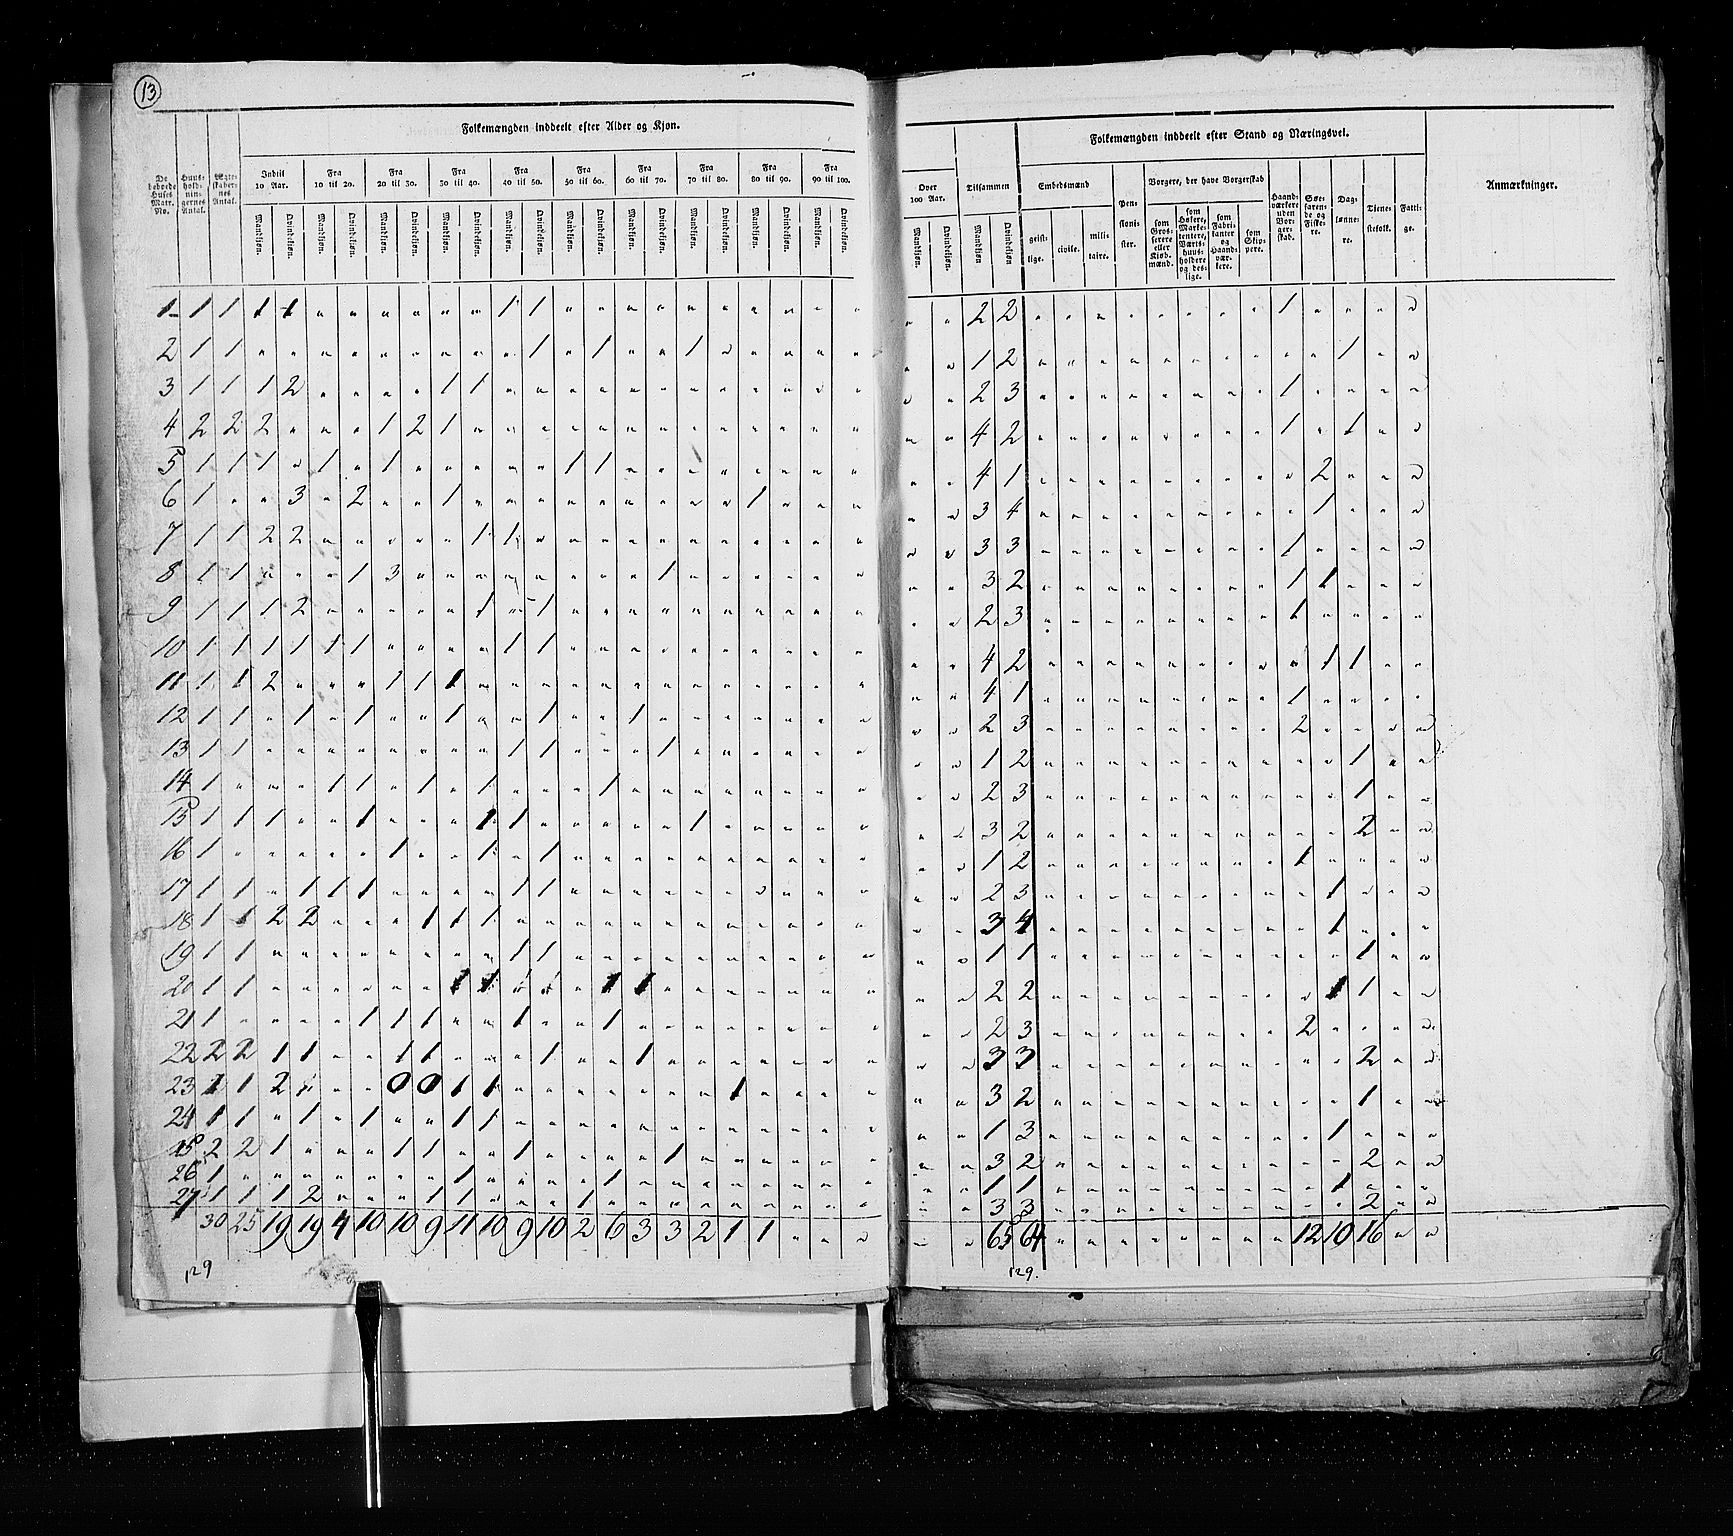 13
Folkemængden inddeelt efter Alder og Kjøn.
De beboede Huses Matr. No. | Huusholdningernes Antal. | Ægteskabernes Antal. | Indtil 10 Aar. | Fra 10 til 20. | Fra 20 til 30. | Fra 30 til 40. | Fra 40 til 50. | Fra 50 til 60. | Fra 60 til 70. | Fra 70 til 80. | Fra 80 til 90. | Fra 90 til 100.
Mandkjøn. Qvindekjøn. Mandkjøn. Qvindekjøn. Mandkjøn. Qvindekjøn. Mandkjøn. Qvindekjøn. Mandkjøn. Qvindekjøn. Mandkjøn. Qvindekjøn. Mandkjøn. Qvindekjøn. Mandkjøn. Qvindekjøn. Mandkjøn. Qvindekjøn. Mandkjøn. Qvindekjøn.
1 1 1 1 1 " " " " " " 1 1 " " " " " " " " " "
2 1 1 " " " " " " " " " 1 " 1 " " 1 " " " " "
3 1 1 1 2 " " " " 1 1 " " " " " " " " " " " "
4 2 2 2 " " " 1 2 1 " " " " " " " " " " " " "
5 1 1 1 " 1 " 1 " " " " " 1 1 " " " " " " " "
6 1 " " 3 " 2 " " 1 " " " " " " " " " 1 " " "
7 1 1 2 2 " " " " " 1 1 " " " " " " " " " " "
8 1 1 " " " 1 3 " " " " " " " " 1 " " " " " "
9 1 1 1 2 " " " " " 1 " 1 " " " " " " " " " "
10 1 1 1 1 1 1 " " " " 1 1 " " " " " " " " " "
11 1 1 2 " " " 1 1 1 " " " " " " " " " " " " "
12 1 1 " 1 " 1 " " 1 " " 1 " " 1 " " " " " " "
13 1 1 " " " " " " " " 1 1 " " " 1 " " " " " "
14 1 " " " 1 1 " 1 " 1 " " " 1 " " " " " " " "
15 1 1 1 " " 1 " " " 1 1 " " " " " 1 " " " " "
16 1 " " " " " 1 " " 1 " 1 " " " " " " " " " "
17 1 1 " 1 1 1 " " " " 1 1 " " " " " " " " " "
18 1 1 2 2 " " " 1 1 1 " " " " " " " " " " " "
19 1 1 " " " " " " " " 1 1 " " " " " " " " " "
20 1 1 " " " " " " 1 1 " " " 1 1 " " " " " " "
21 1 " " " " 1 1 1 " " 1 " " 1 " " " " " " " "
22 2 2 1 1 " " 1 1 " " " 1 " " 1 " " " " " " "
23 1 1 2 " " " 0 0 1 1 " " " " " " " 1 " " " "
24 1 1 " 1 " 1 " " 1 1 " " " " " " " " " " " "
25 2 2 1 " " " 1 1 " " 1 " " " " 1 " " " " " "
26 1 " " " " " " " 1 " " " " 1 " " " " " " " "
27 1 1 1 2 " " " 1 1 " " " 1 " " " " " " " " "
30 25 19 19 4 10 10 9 11 10 9 10 2 6 3 3 2 1 1 " " "
129
Folkemængden inddeelt efter Stand og Næringsvei.
Over 100 Aar. | Tilsammen | Embedsmænd | Pensionister. | Borgere, der have Borgerskab | Haandværkere uden Borgerskab. | Søefarende og Fiskere. | Daglønnere. | Tienestefolk. | Fattige. | Anmærkninger.
Mandkjøn. Qvindekjøn. Mandkjøn. Qvindekjøn. geistlige. civile. militaire. som Grosserere eller Kiøbmænd. som Høkere, Marketentere, Værtshuusholdere og deslige. som Fabrikanter og Haandværkere. som Skippere.
" " 2 2 " " " " " " " " 1 " " " "
" " 1 2 " " " " " " " " " " 1 " "
" " 2 3 " " " " " " " " 1 " " " "
" " 4 2 " " " " " " " " 1 " 1 " "
" " 4 1 " " " " " " " " " 2 " " "
" " 3 4 " " " " " " " " " 1 " " "
" " 3 3 " " " " " " " " 1 " " " "
" " 3 2 " " " " " " " " 1 1 " " "
" " 2 3 " " " " " " " " 1 " " " "
" " 4 2 " " " " " " " " " 1 1 " "
" " 4 1 " " " " " " " " 1 " " " "
" " 2 3 " " " " " " " " 2 " " " "
" " 1 2 " " " " " " " " " " 1 " "
" " 2 3 " " " " " " " " " " 1 " "
" " 3 2 " " " " " " " " " " 2 " "
" " 1 2 " " " " " " " " 1 " " " "
" " 2 3 " " " " " " " " " 1 " " "
" " 3 4 " " " " " " " " " 1 " " "
" " 1 1 " " " " " " " " " " 1 " "
" " 2 2 " " " " " " " " " 1 1 " "
" " 2 3 " " " " " " " " 2 " " " "
" " 3 3 " " " " " " " " " " 2 " "
" " 3 2 " " " " " " " " " " 1 " "
" " 1 3 " " " " " " " " " 1 " " "
" " 3 2 " " " " " " " " " " 2 " "
" " 1 1 " " " " " " " " " 1 " " "
" " 3 3 " " " " " " " " " " 2 " "
" " 65 64 " " " " " " " " 12 10 16 " "
129.